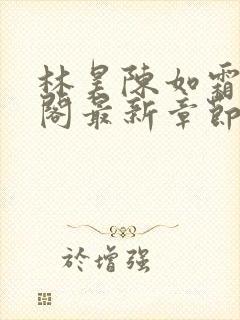 林昊陈如霜
阁最新章節
於增强